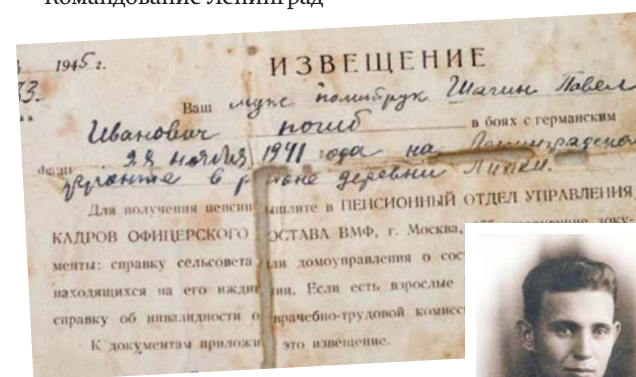 Командование Ленинград
1945 г.
ИЗВЕЩЕНИЕ
Ваш муж политрук Шагин Павел
Иванович погиб в боях с германским
28 ноября 1941 года на Ленинградском
фронте в районе деревни Липки.
Для получения пенсии вышлите в ПЕНСИОННЫЙ ОТДЕЛ УПРАВЛЕНИЯ
КАДРОВ ОФИЦЕРСКОГО СОСТАВА ВМФ, г. Москва,
менты: справку сельсовета или домоуправления о сос
находящихся на его иждив ии. Если есть взрослые
справку об инвалидности о врачебно-трудовой комисс
К документам приложи это извещение.